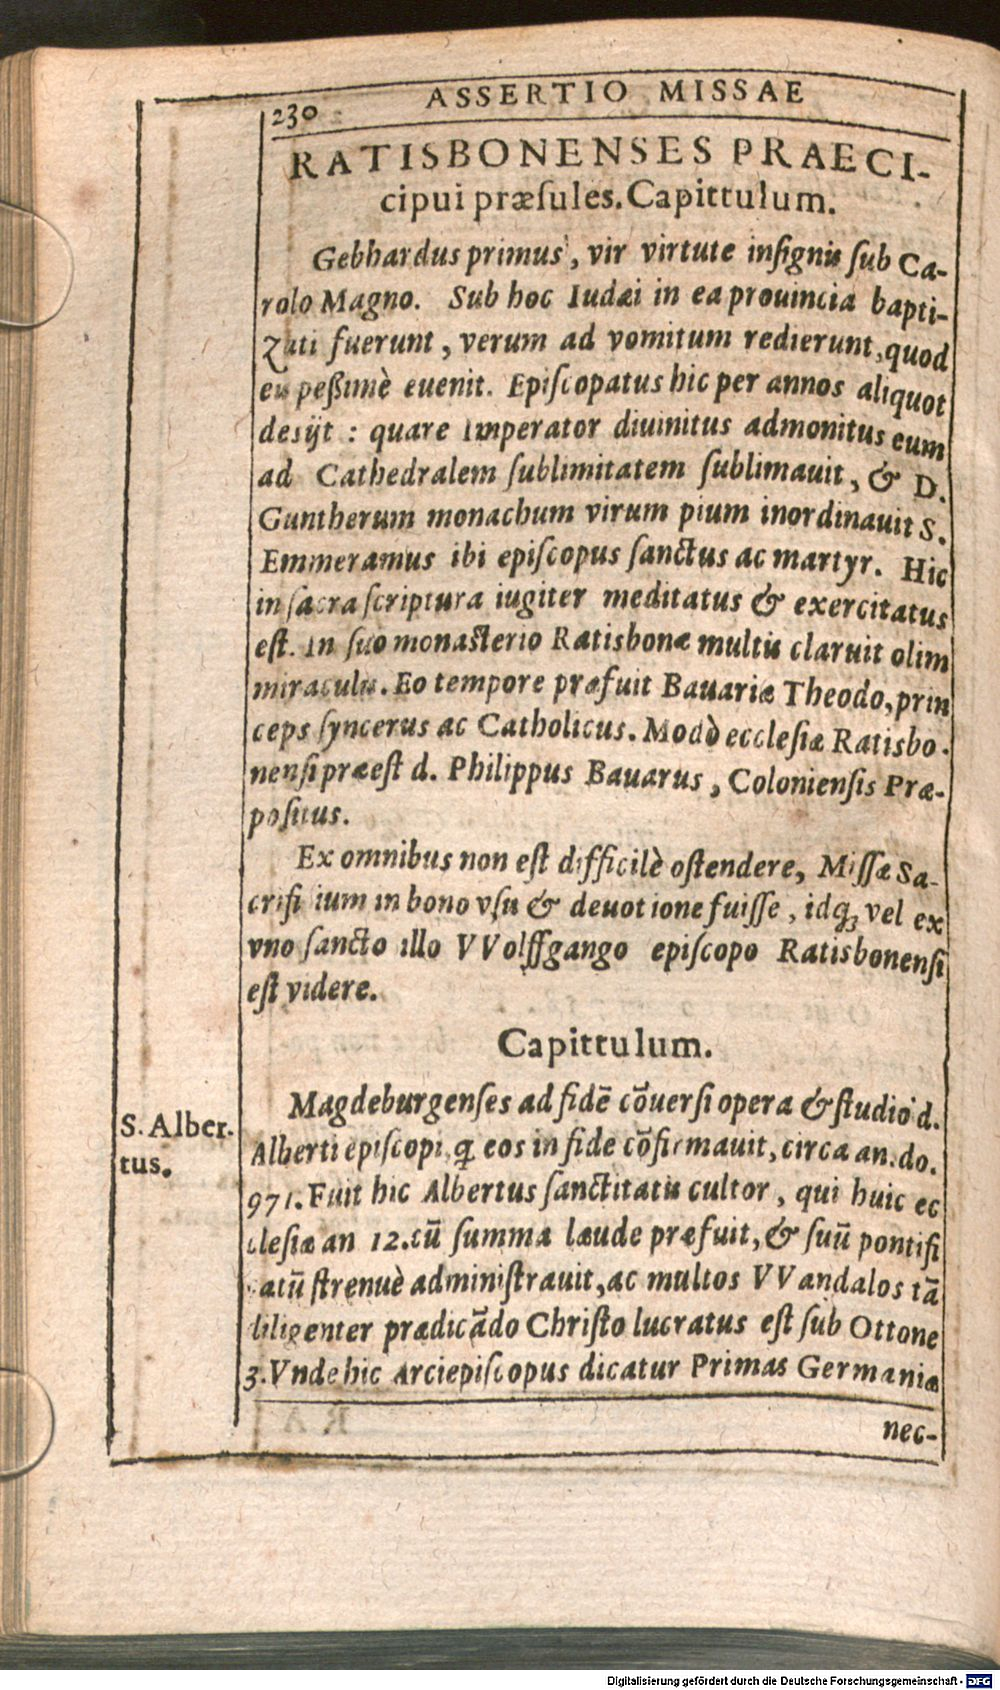 230
ASSERTIO MISSAE
RATISBONENSES PRAECI-
cipui præſules. Capittulum.
Gebhardus primus, vir virtute inſignis ſub Ca-
rolo Magno. Sub hoc Iudæi in ea prouincia bapti-
Zati fuerunt, verum ad vomitum redierunt, quod
eis peßimè euenit. Epiſcopatus hic per annos aliquot
desijt : quare Imperator diuinitus admonitus eum
ad Cathedralem ſublimitatem ſublimauit, & D.
Guntherum monachum virum pium inordinauit S.
Emmeramus ibi epiſcopus ſanctus ac martyr. Hic
in ſacra ſcriptura iugiter meditatus & exercitatus
eſt. In ſuo monaſterio Ratisbonæ multis claruit olim
miraculis. Eo tempore præfuit Bauariæ Theodo, prin
ceps ſyncerus ac Catholicus. Modò eccleſiæ Ratisbo-
nenſi præeſt d. Philippus Bauarus, Colonienſis Præ-
poſitus.
Ex omnibus non eſt difficilè oſtendere, Miſſæ Sa-
crificium in bono vſu & deuotione fuiſſe, idq́ꝫ vel ex
vno ſancto illo VVolffgango epiſcopo Ratisbonenſi
eſt videre.
Capittulum.
Magdeburgenſes ad fidē cōuerſi opera & ſtudio d.
Alberti epiſcopi, q̄ eos in fide cōfirmauit, circa an. do.
971. Fuit hic Albertus ſanctitatis cultor, qui huic ec
cleſiæ an 12. cū ſumma laude præfuit, & ſuū pontifi
catū ſtrenuè adminiſtrauit, ac multos VVandalos tā
diligenter prædicādo Chriſto lucratus eſt ſub Ottone
3. Vnde hic Arciepiſcopus dicatur Primas Germaniæ
nec-
S. Alber-
tus.
Digitalisierung gefördert durch die Deutsche Forschungsgemeinschaft - DFG